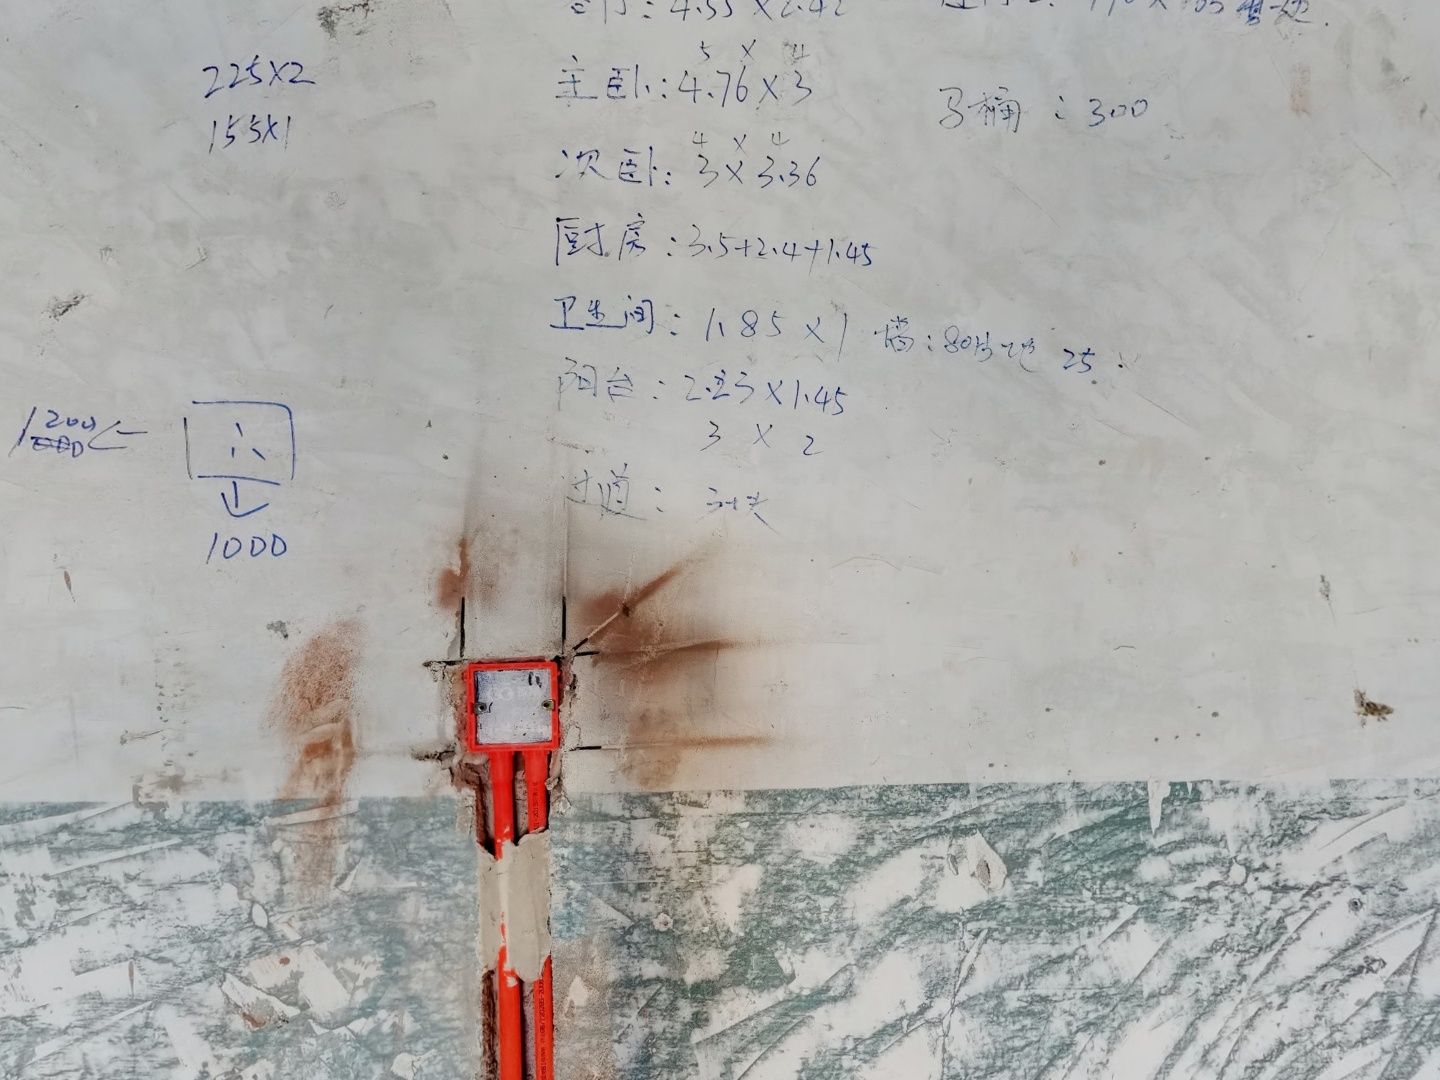 225X2
155X1
5 X 4
主卧:4.76X3
马桶:300
4 X 4
次卧:3X3.36
厨房:3.5+2.4+1.45
卫生间:1.85X1 墙:80块 地 25
阳台:2.23X1.45
3 X 2
过道:
1200
1000